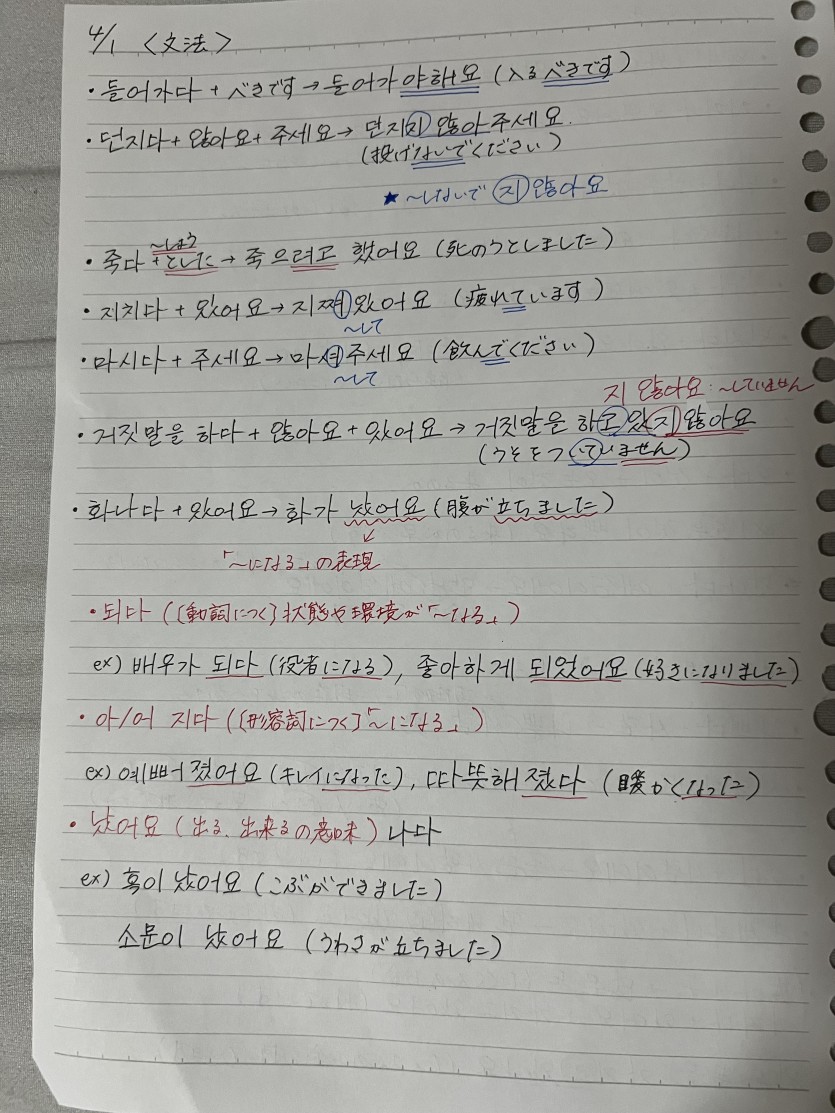 4/1 〈文法〉
・들어가다 + べきです → 들어가야해요 (入るべきです)
・던지다 + 않아요 + 주세요 → 던지지 않아주세요.
(投げないでください)
★ ~しないで 지 않아요
~しよう
・죽다 + とした → 죽으려고 했어요 (死のうとしました)
・지치다 + 있어요 → 지쪄있어요 (疲れています)
~して
・마시다 + 주세요 → 마셔주세요 (飲んでください)
~して
지 않아요:~していません
・거짓말을 하다 + 않아요 + 있어요 → 거짓말을 하고 있지 않아요
(うそをついていません)
・화나다 + 있어요 → 화가 났어요 (腹が立ちました)
「~になる」の表現
・되다 (〔動詞につく〕状態や環境が「~なる」)
ex) 배우가 되다 (役者になる), 좋아하게 되었어요 (好きになりました)
・아/어 지다 (〔形容詞につく〕「~になる」)
ex) 예뻐졌어요 (キレイになった), 따뜻해졌다 (暖かくなった)
・났어요 (出る、出来るの意味) 나다
ex) 혹이 났어요 (こぶができました)
소문이 났어요 (うわさが立ちました)